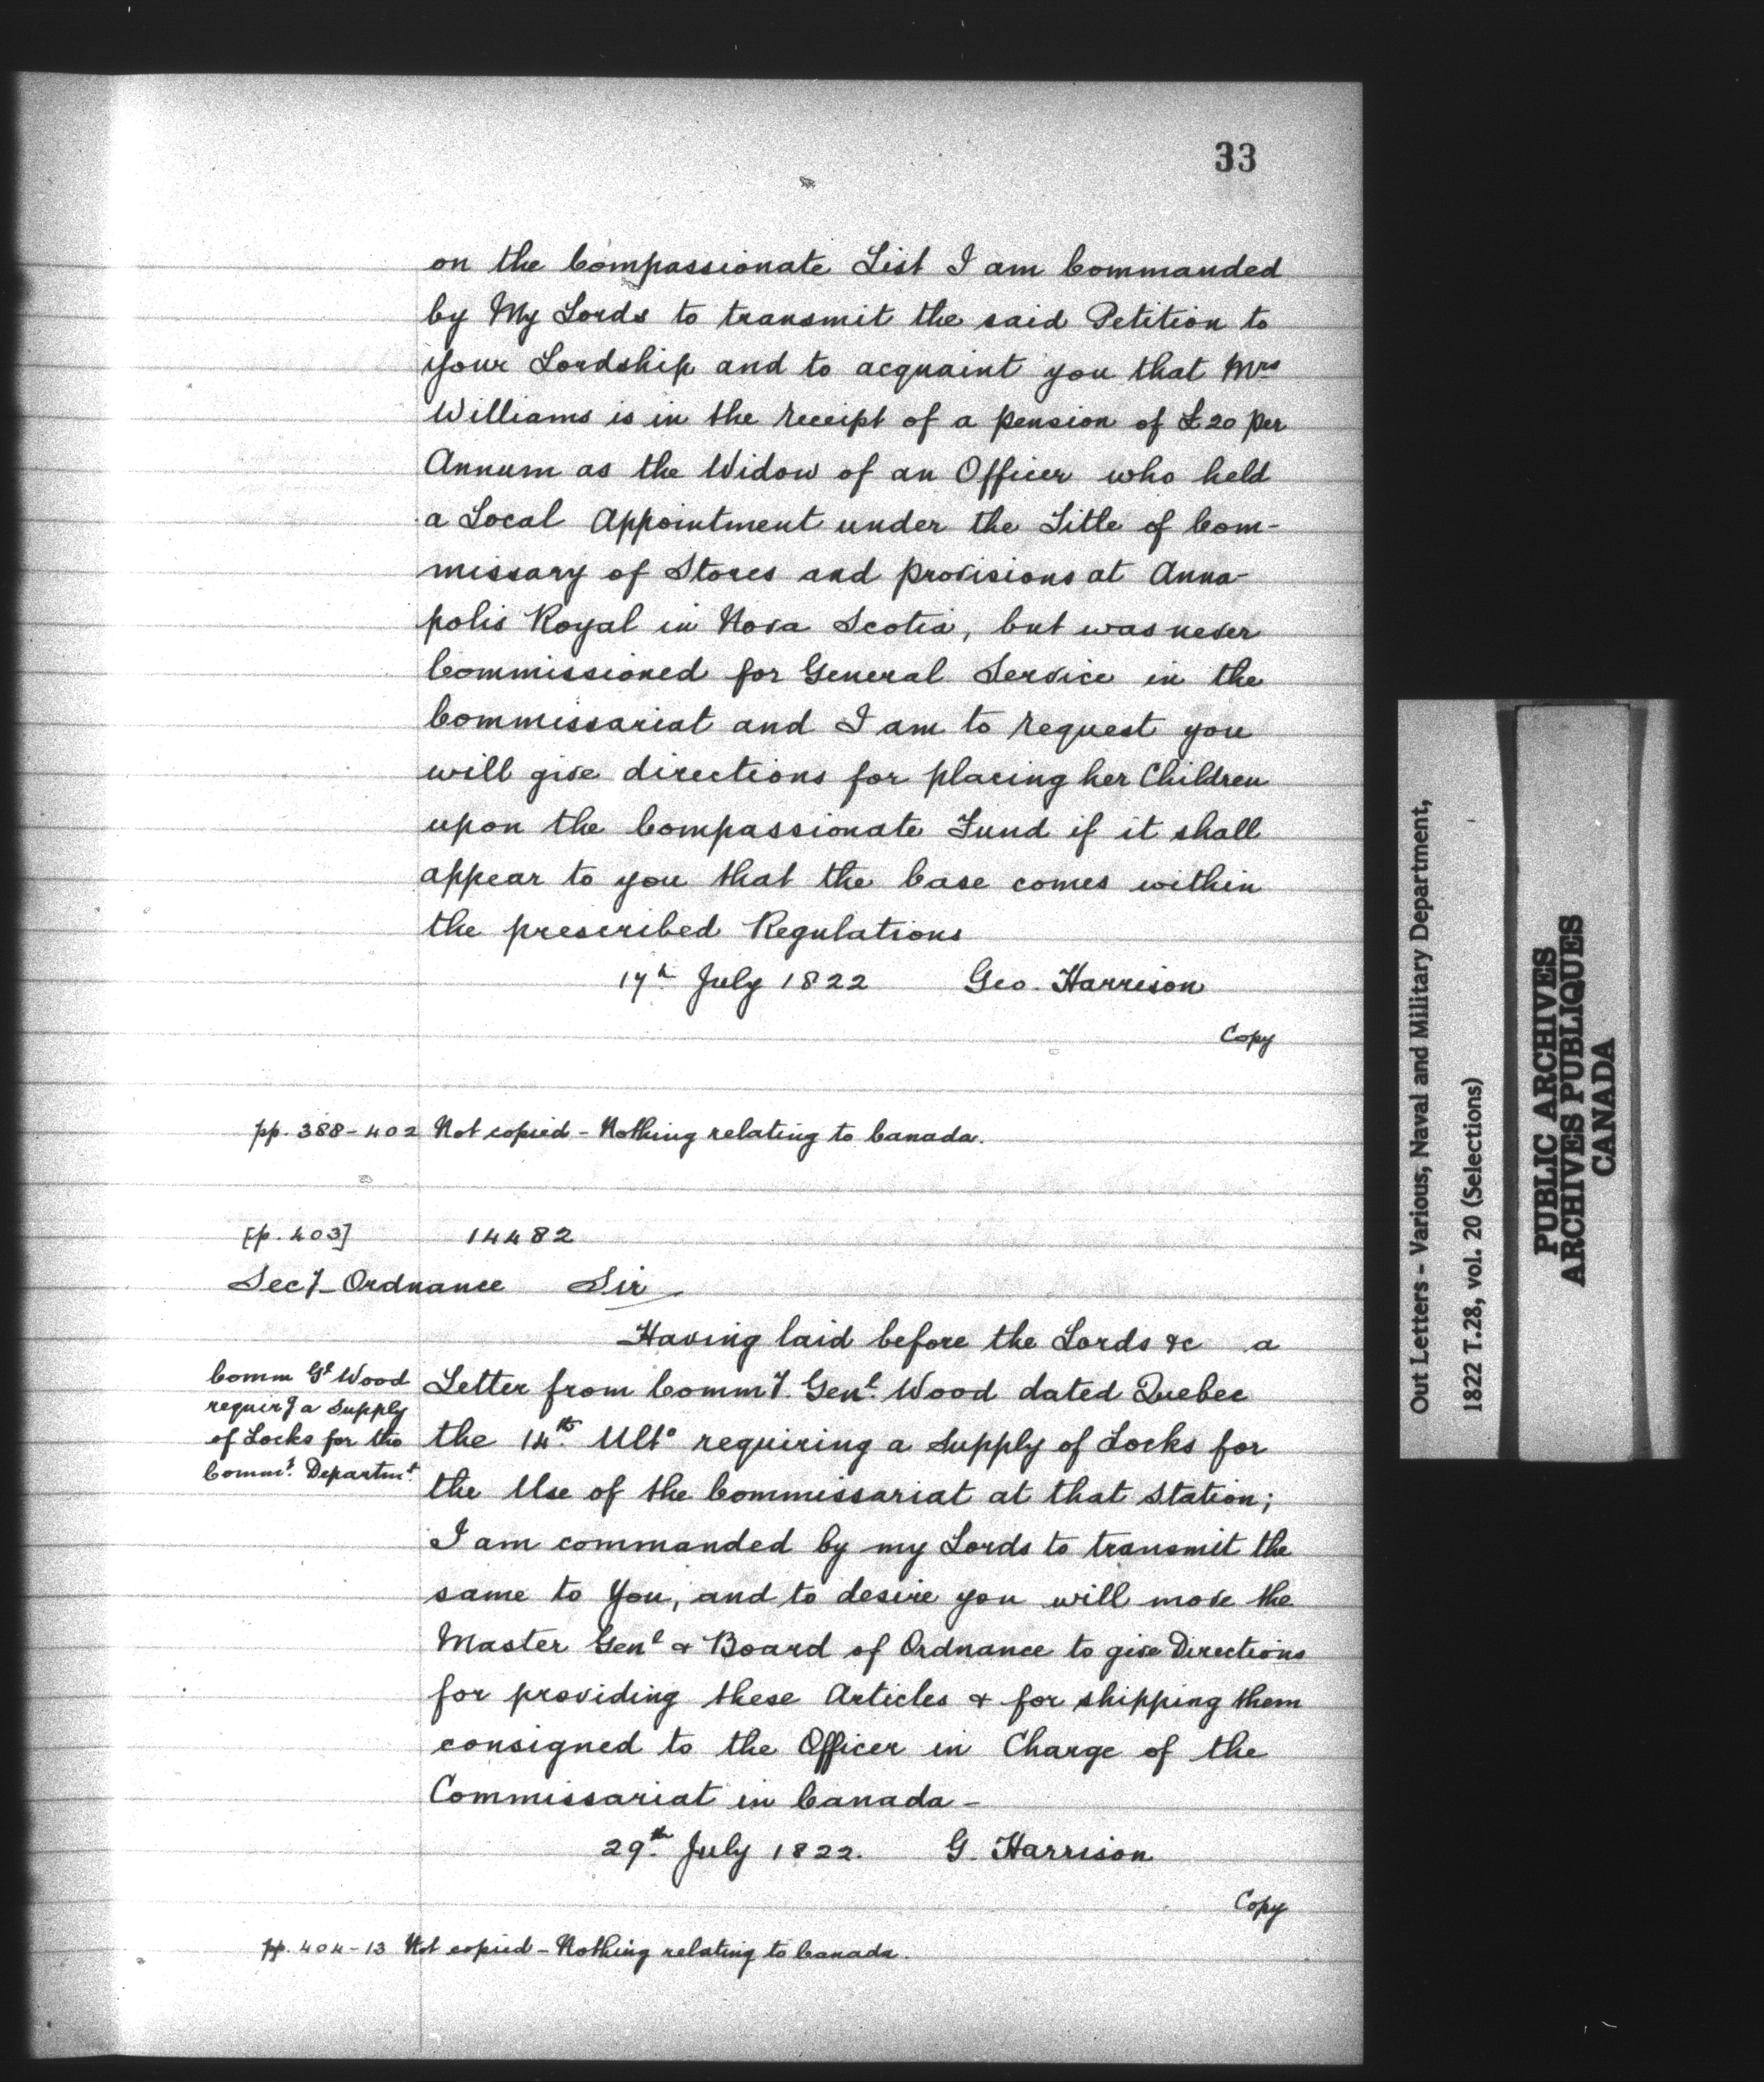 33
on the Compassionate List I am Commanded
by My Lords to transmit the said Petition to
your Lordship and to acquaint you that Mrs
Williams is in the receipt of a pension of £20 per
Annum as the Widow of an Officer who held
a Local Appointment under the Title of Com-
missary of Stores and provisions at Anna-
polis Royal in Nova Scotia, but was never
Commissioned for General Service in the
Commissariat and I am to request you
will give directions for placing her Children
upon the Compassionate Fund if it shall
appear to you that the Case comes within
the prescribed Regulations
17th July 1822 Geo. Harrison
Copy
pp. 388-402 Not copied - Nothing relating to Canada.
[p. 403] 14482
Secy Ordnance Sir
Having laid before the Lords &c a
Comm Gl Wood
requirg a supply
of Locks for the
Commt. Departmt.
Letter from Commy. Genl. Wood dated Quebec
the 14th. Ulto requiring a supply of Locks for
the Use of the Commissariat at that Station;
I am commanded by my Lords to transmit the
same to You, and to desire you will move the
Master Genl & Board of Ordnance to give Directions
for providing these Articles & for shipping them
consigned to the Officer in Charge of the
Commissariat in Canada -
29th. July 1822. G. Harrison
Copy
pp. 404-13 Not copied - Nothing relating to Canada.
Out Letters - Various, Naval and Military Department,
1822 T.28, vol. 20 (Selections)
PUBLIC ARCHIVES
ARCHIVES PUBLIQUES
CANADA